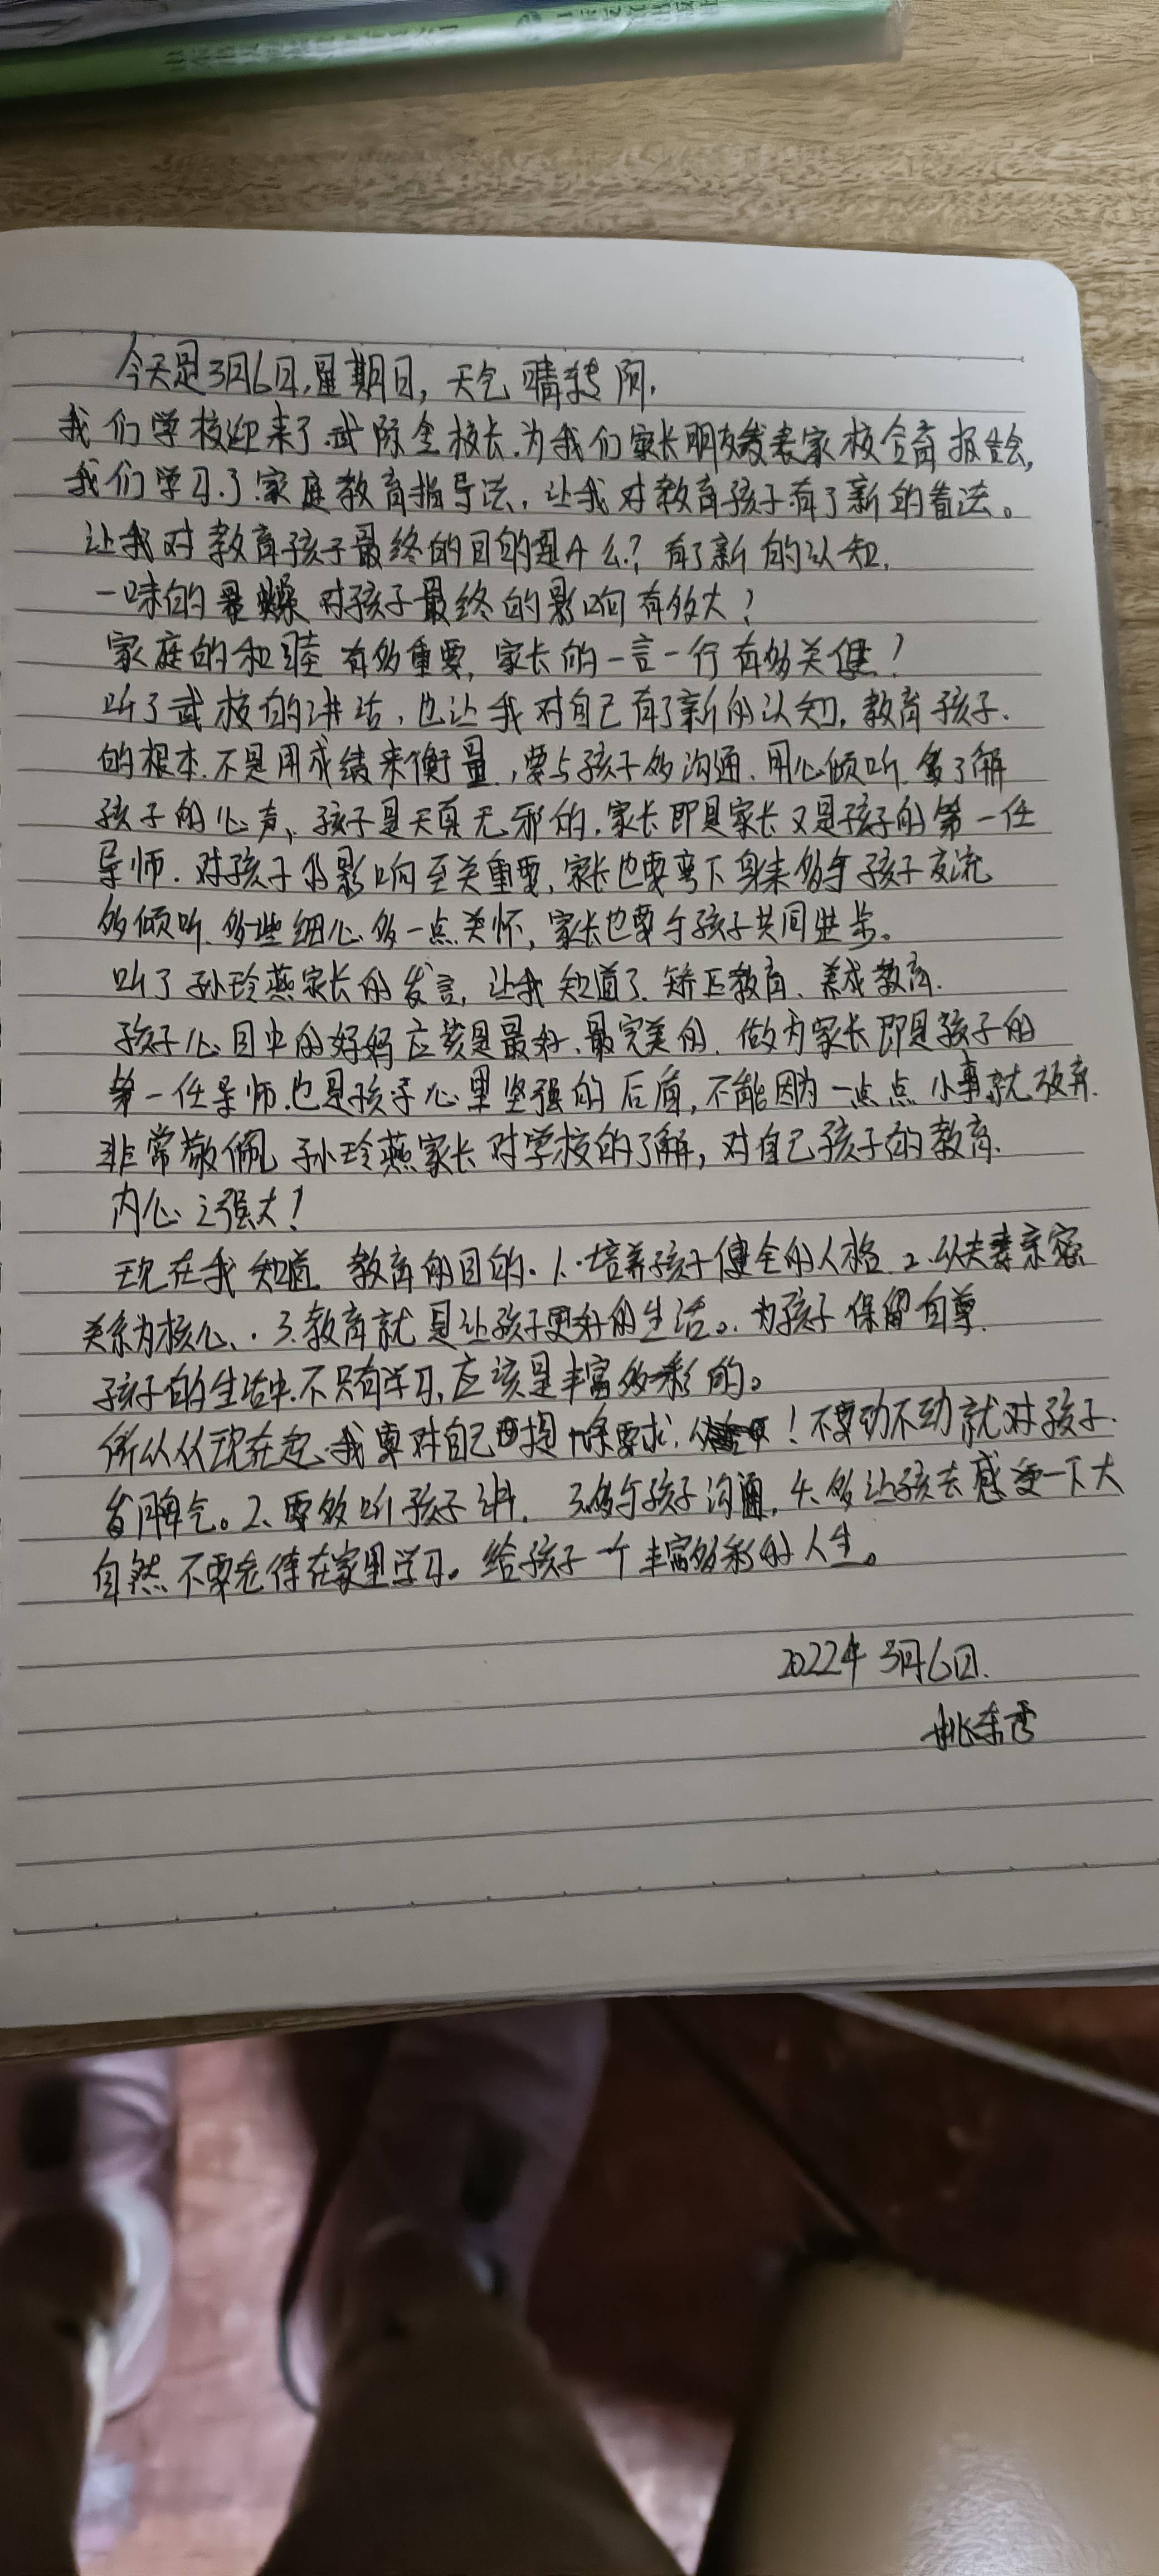 今天是3月6日,星期日,天气晴转阴.
我们学校迎来了武际金校长.为我们家长朋友发表家校合育报告会,
我们学习了家庭教育指导法,让我对教育孩子有了新的看法。
让我对教育孩子最终的目的是什么?有了新的认知.
一味的 对孩子最终的影响有多大?
家庭的和睦有多重要,家长的一言一行有多关健!
听了武校的讲话,也让我对自己有了新的认知,教育孩子.
的根本.不是用成绩来衡量,要与孩子多沟通.用心倾听.多了解
孩子的心声,孩子是天真无邪的.家长即是家长又是孩子的第一任
导师.对孩子的影响至关重要,家长也要弯下身来多与孩子交流
多倾听.多些细心多一点关怀,家长也要与孩子共同进步。
听了孙玲燕家长的发言,让我知道了.矫正教育、养成教育.
孩子心目中的好妈应该是最好、最完美的.做为家长即是孩子的
第一任导师.也是孩子心里坚强的后盾,不能因为一点点小事就放弃.
非常敬佩孙玲燕家长对学校的了解,对自己孩子的教育.
内心之强大!
现在我知道教育的目的.1.培养孩子健全的人格.2.以夫妻亲密
关系为核心、.3.教育就是让孩子更好的生活。.为孩子保留自尊.
孩子的生活中.不只有学习,应该是丰富多彩的。
所以从现在起、我要对自己提 条要求, !不要动不动就对孩子.
发脾气。2、要多听孩子讲. 3.多与孩子沟通,4、多让孩去感受一下大
自然不要老待在家里学习。给孩子一个丰富多彩的人生。
2022年3月6日.
姚东秀